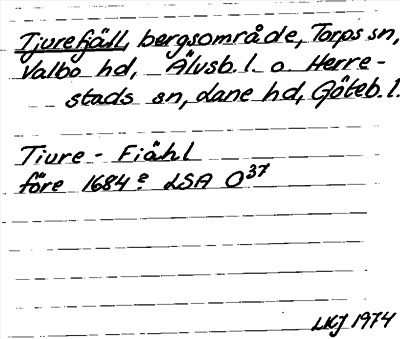 Tjurefjäll, bergsområde, Torps sn,
Valbo hd, Älvsb. l. o. Herre-
stads sn, Lane hd, Göteb. l.
Tiure - Fiähl
före 1684? LSA O37
LKJ 1974